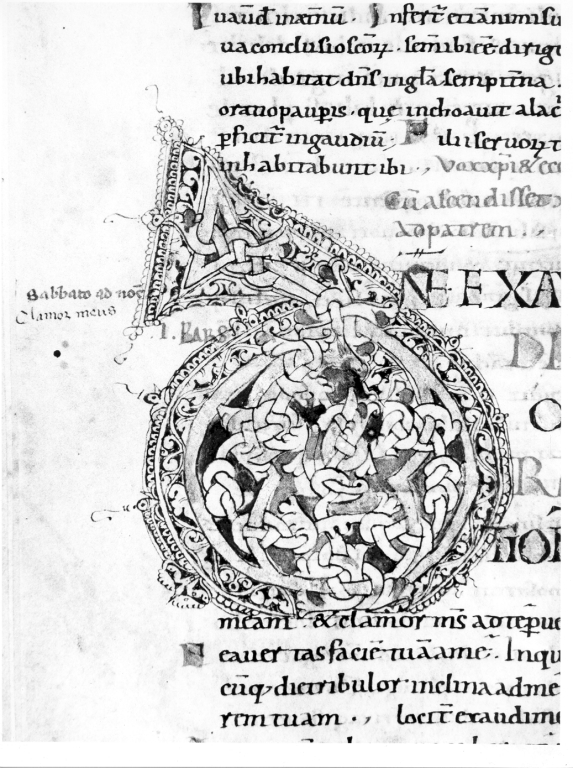 uaud in æternū . Infert̄ etiā nimi su
ua conclusio scōrꝫ . semī bicē dirigi
ubi habitat dn̄s in gl̄a sempit̄na .
oratio paup̄is . que inchoauit alac̄
p̄ficit̄ in gaudiū . Filii seruorꝫ t
inhabitabunt ibi ., Vox xp̄i & ecc
Cū ascendisset
ad patrem .,
Sabbato ad noc̄
Clamor meus
I. PARS
DNE EXA
DI
O
RA
TION
meam . & clamor m̄s ad te p̄ue
eauertas faciē tuā a me . In qu
cūqꝫ die tribulor inclina ad me
rem tuam ., loc̄ īt exaudi me